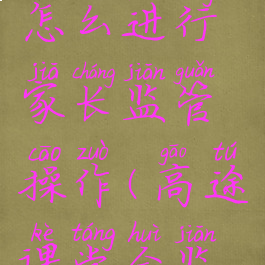 怎么进行
jiā cháng jiān guǎn
家长监管
cāo zuò gāo tú
操作(高途
kè táng huì jiān
课堂会监